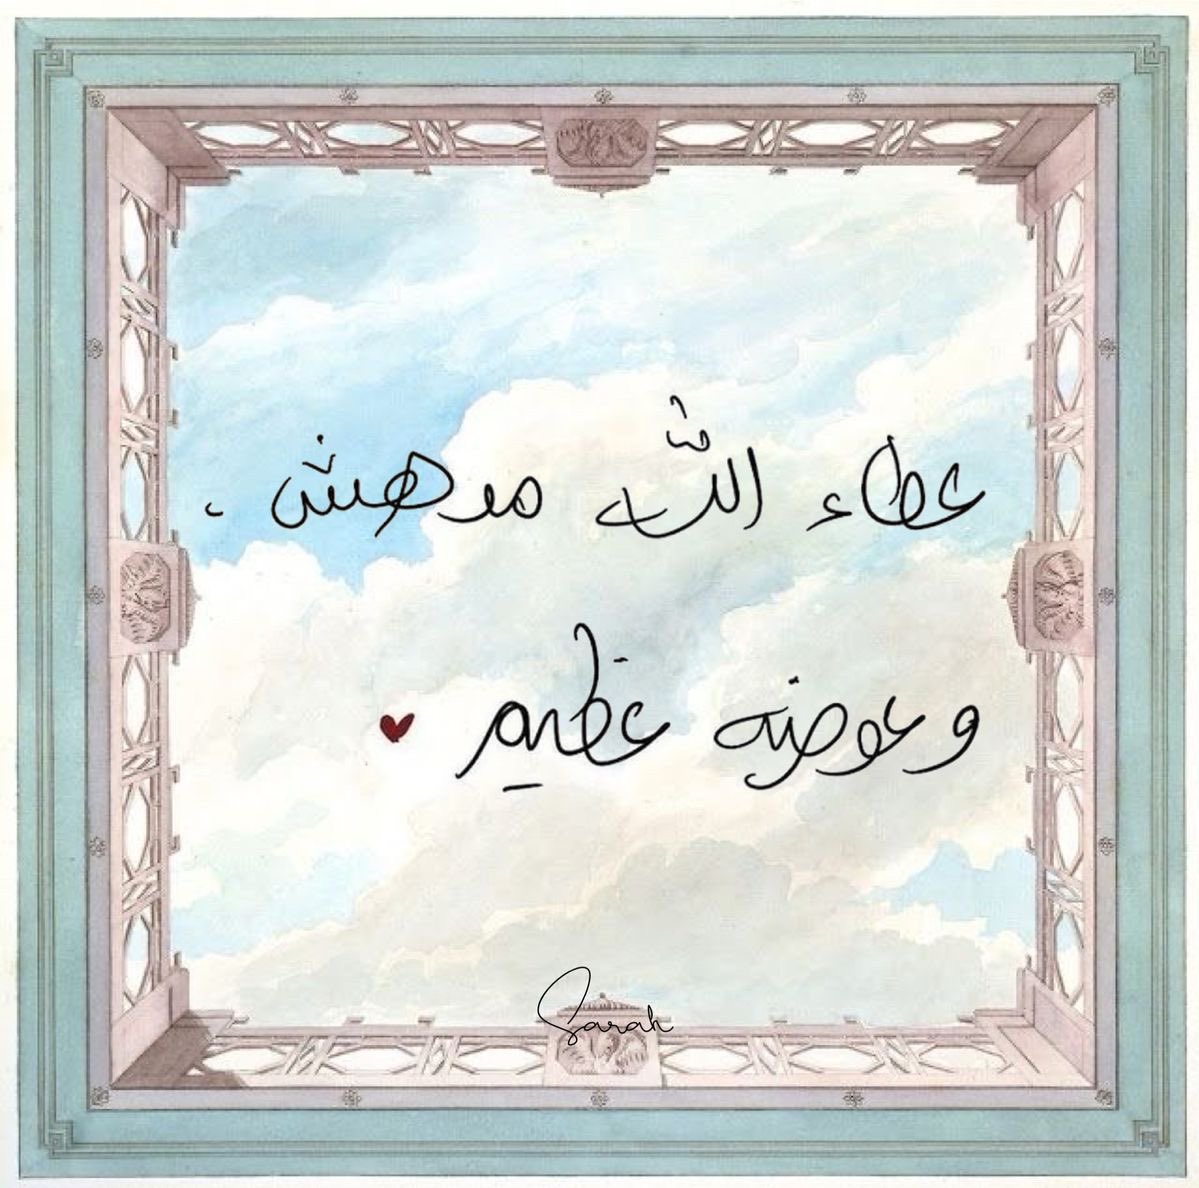 عطاء الله مدهش ،
وعوضه عظيم ♥
Sarah